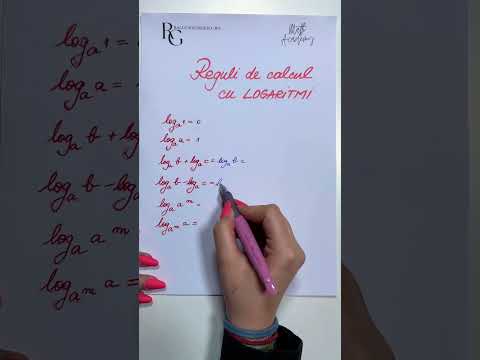 RG
Math
Academy
Reguli de calcul
cu LOGARITMI
logₐ 1 = 0
logₐ a = 1
logₐ b + logₐ = = logₐ b =
logₐ b - logₐ = =
logₐ aᵐ =
log_aᵐ a =